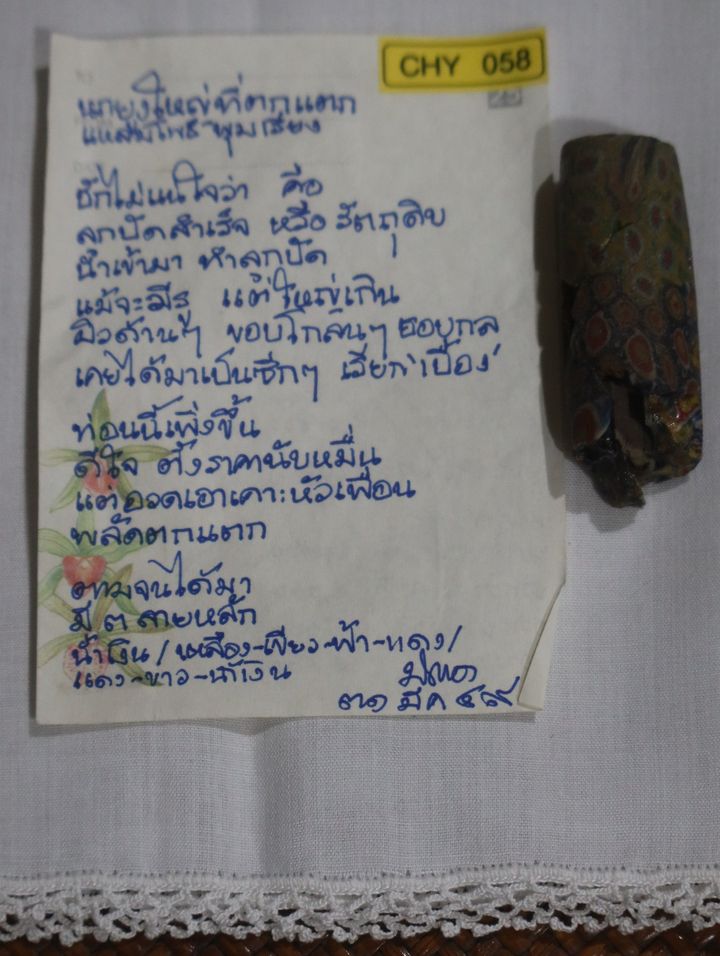 CHY 058
นกยูงใหญ่ที่ตกแตก
แหลมโพธิ์ พุมเรียง
ชักไม่แน่ใจว่า คือ
ลูกปัดสำเร็จ หรือ วัตถุดิบ
นำเข้ามา ทำลูกปัด
แม้จะมีรู แต่ใหญ่เกิน
ผิวด้านๆ ขอบโกลนๆ
เคยได้มาเป็นซีกๆ เรียก 'เบื้อง'
ท่อนนี้เพิ่งขึ้น
ดีใจ ตั้งราคานับหมื่น
แต่อวดเอาเคาะหัวเพื่อน
พลัดตกแตก
ตามจนได้มา
มี ๓ ลายหลัก
น้ำเงิน / เหลือง-เขียว-ฟ้า-แดง /
แดง-ขาว-น้ำเงิน
๓๑ มีค ๔๙